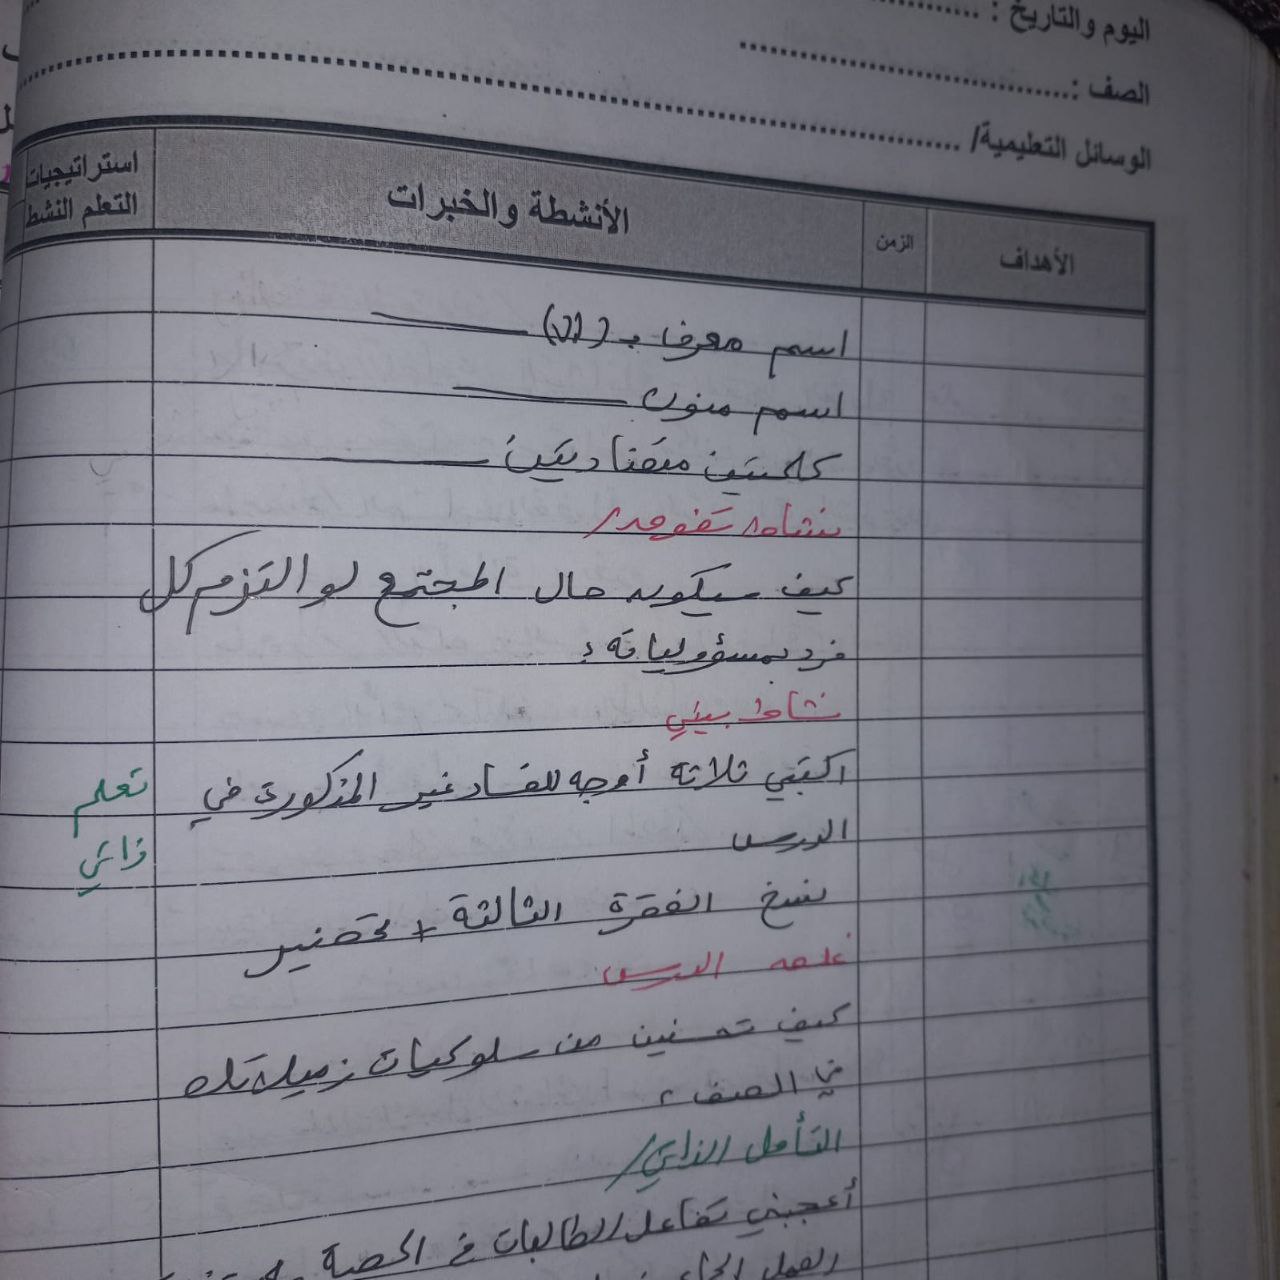 اليوم والتاريخ :
الصف :
الوسائل التعليمية/
الأهداف
الزمن
الأنشطة والخبرات
استراتيجيات التعلم النشط
اسم معرف بـ (ال)
اسم منون
كلمتين متضادتين
نشاط
كيف سيكون حال المجتمع لو التزم كل
فرد بمسؤولياته ؟
نشاط بيتي
اكتبي ثلاثة أوجه للفساد غير المذكورة في
تعلم
الدرس
ذاتي
نسخ الفقرة الثالثة + تحضير
الدرس
كيف تحسنين من سلوكيات زميلاتك
في الصف ؟
التأمل الذاتي/
أعجبني تفاعل الطالبات في الحصة
العمل